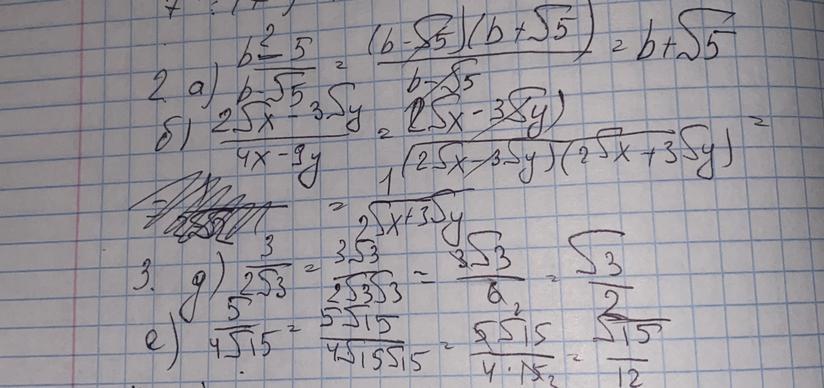 2. а) b²-5 / b-√5 = (b-√5)(b+√5) / b-√5 = b+√5
б) 2√x-3√y / 4x-9y = (2√x-3√y) / (2√x-3√y)(2√x+3√y) =
= 1 / 2√x+3√y
3. д) 3 / 2√3 = 3√3 / 2√3√3 = 3√3 / 6 2 = √3 / 2
е) 5 / 4√15 = 5√15 / 4√15√15 = 5√15 / 4·15 2 = √15 / 12